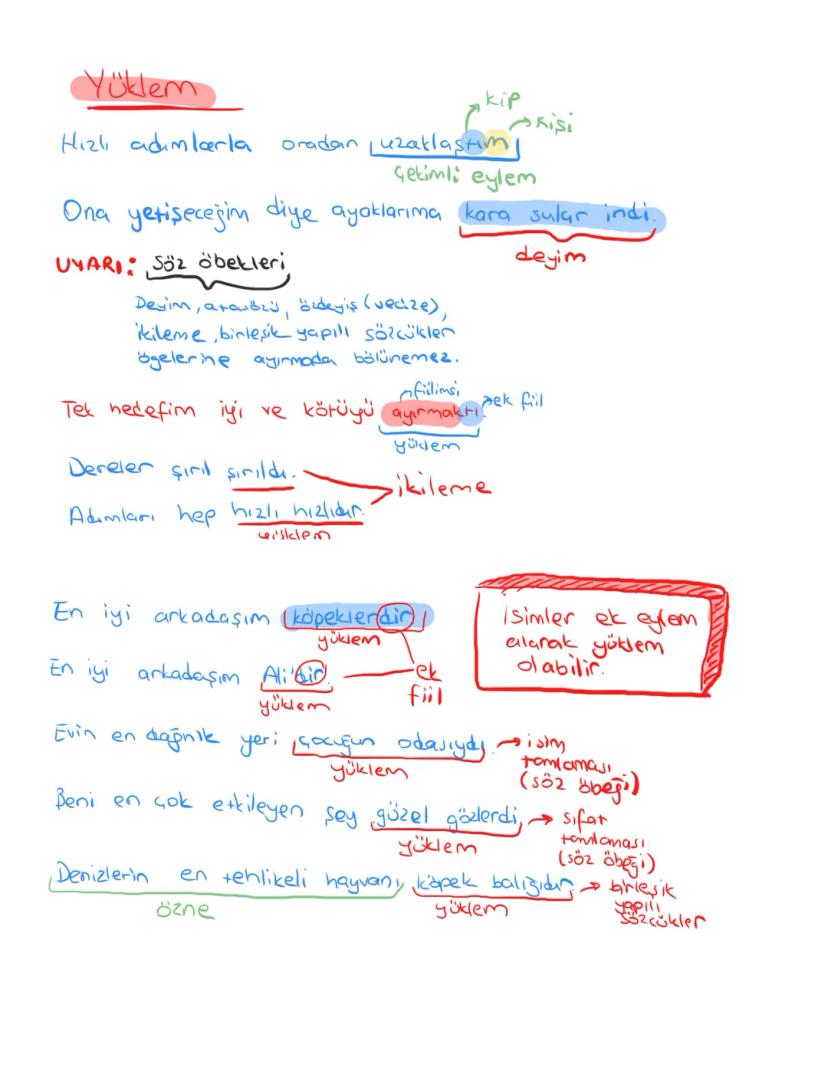 Yüklem
kip
kişi
Hızlı adımlarla oradan uzaklaştım
Çekimli eylem
Ona yetişeceğim diye ayaklarıma kara sular indi.
deyim
UYARI: Söz öbekleri
Deyim, atasözü, özdeyiş (vecize),
ikileme, birleşik yapılı sözcükler
ögelerine ayırmada bölünemez.
fiilimsi
ek fiil
Tek hedefim iyi ve kötüyü ayırmaktı.
yüklem
Dereler şırıl şırıldı.
ikileme
Adımları hep hızlı hızlıdır.
yüklem
En iyi arkadaşım köpeklerdir
yüklem
İsimler ek eylem
alarak yüklem
olabilir.
En iyi arkadaşım Ali'dir.
ek
fiil
yüklem
Evin en dağınık yeri çocuğun odasıydı. isim
tamlaması
(söz öbeği)
yüklem
Beni en çok etkileyen şey güzel gözlerdi, sıfat
tamlaması
(söz öbeği)
yüklem
Denizlerin en tehlikeli hayvanı, köpek balığıdır birleşik
yapılı
sözcükler
özne
yüklem